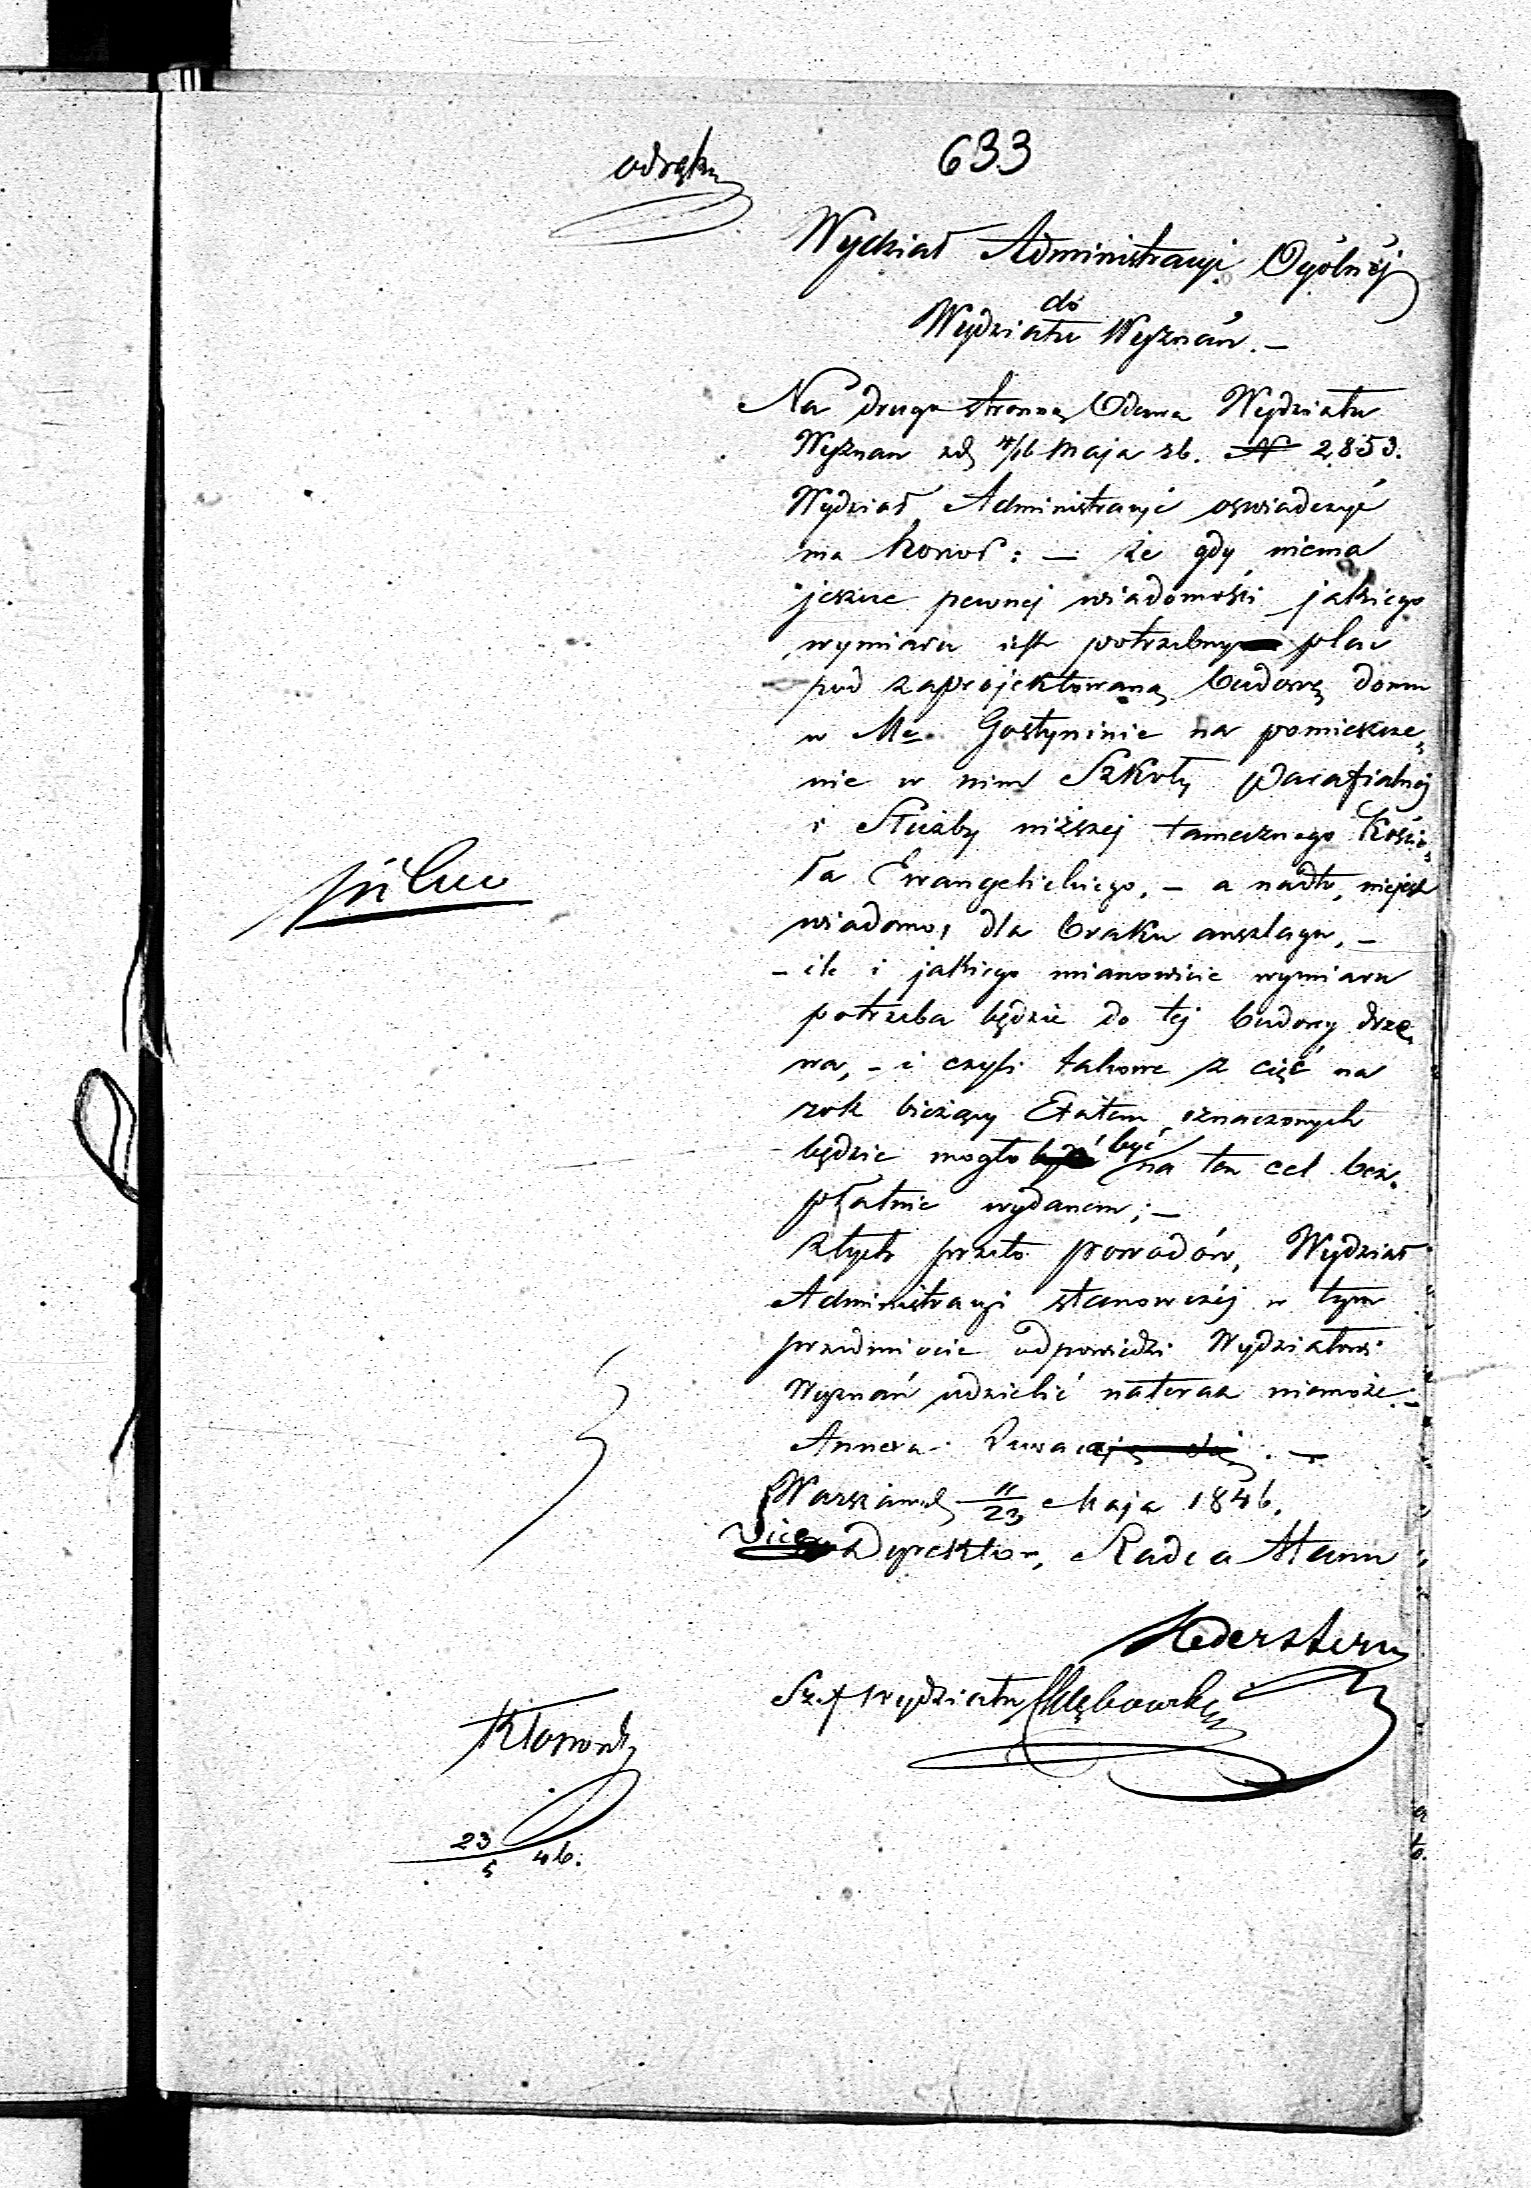 odręku
633
Wydział Administracyi Ogólnéj
do
Wydziału Wyznań. —
Na drugą stronę Wydziału
Wyznań zd 4/16 Maja rb. N 2853.
Wydział Administracyi oswiadczyć
ma honor: — że gdy niema
jeszcze pewnej wiadomości jakiego
wymiaru jest potrzebny plac
pod zaprojektowaną budowę domu
w Me Gostyninie na pomieszcze-
nie w nim Szkoły Parafialnej
i Służby niższej tamecznego Kościo-
ła Ewangelickiego, — a nadto, niejest
wiadomo, dla braku anszlagu, —
– ile i jakiego mianowicie wymiaru
potrzeba będzie do tej budowy drze-
wa, – i czyli takowe z cięć na
rok bieżący Etatem oznaczonych
będzie mogło być na ten cel bez-
płatnie wydanem; —
z tych przeto powodów, Wydział
Administracyi stanowczéj w tym
przedmiocie odpowiedzi Wydziałowi
Wyznań udzielić nateraz niemoże. —
Annexa
pilne
Warszawa d 11/23 Maja 1846.
Vice Dyrektor, Radca Stanu
Szef Wydziału
23/5 46.